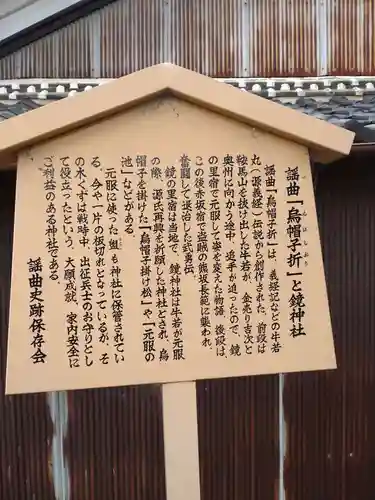 謡曲「烏帽子折」と鏡神社
えぼしおり
謡曲「烏帽子折」は、義経記などの牛若
丸(源義経)伝説から創作された。前段は
鞍馬山を抜け出した牛若が、金売り吉次と
奥州に向かう途中、追手が迫ったので、鏡
の里宿で元服して姿を変えた物語、後段は、
この後赤坂宿で盗賊の熊坂長範に集われ、
奮闘して退治した武勇伝。
鏡の里宿は当地で、鏡神社は牛若が元服
の際、源氏再興を祈願した神社とされ、烏
帽子を掛けた「烏帽子掛け松」や「元服の
池」などがある。
元服に使った盥も神社に保管されてい
る。今や一片の板切れとなっているが、そ
の木くずは戦時中、出征兵士のお守りとし
て役立ったという。大願成就、家内安全に
ご利益のある神社である。
謡曲史跡保存会